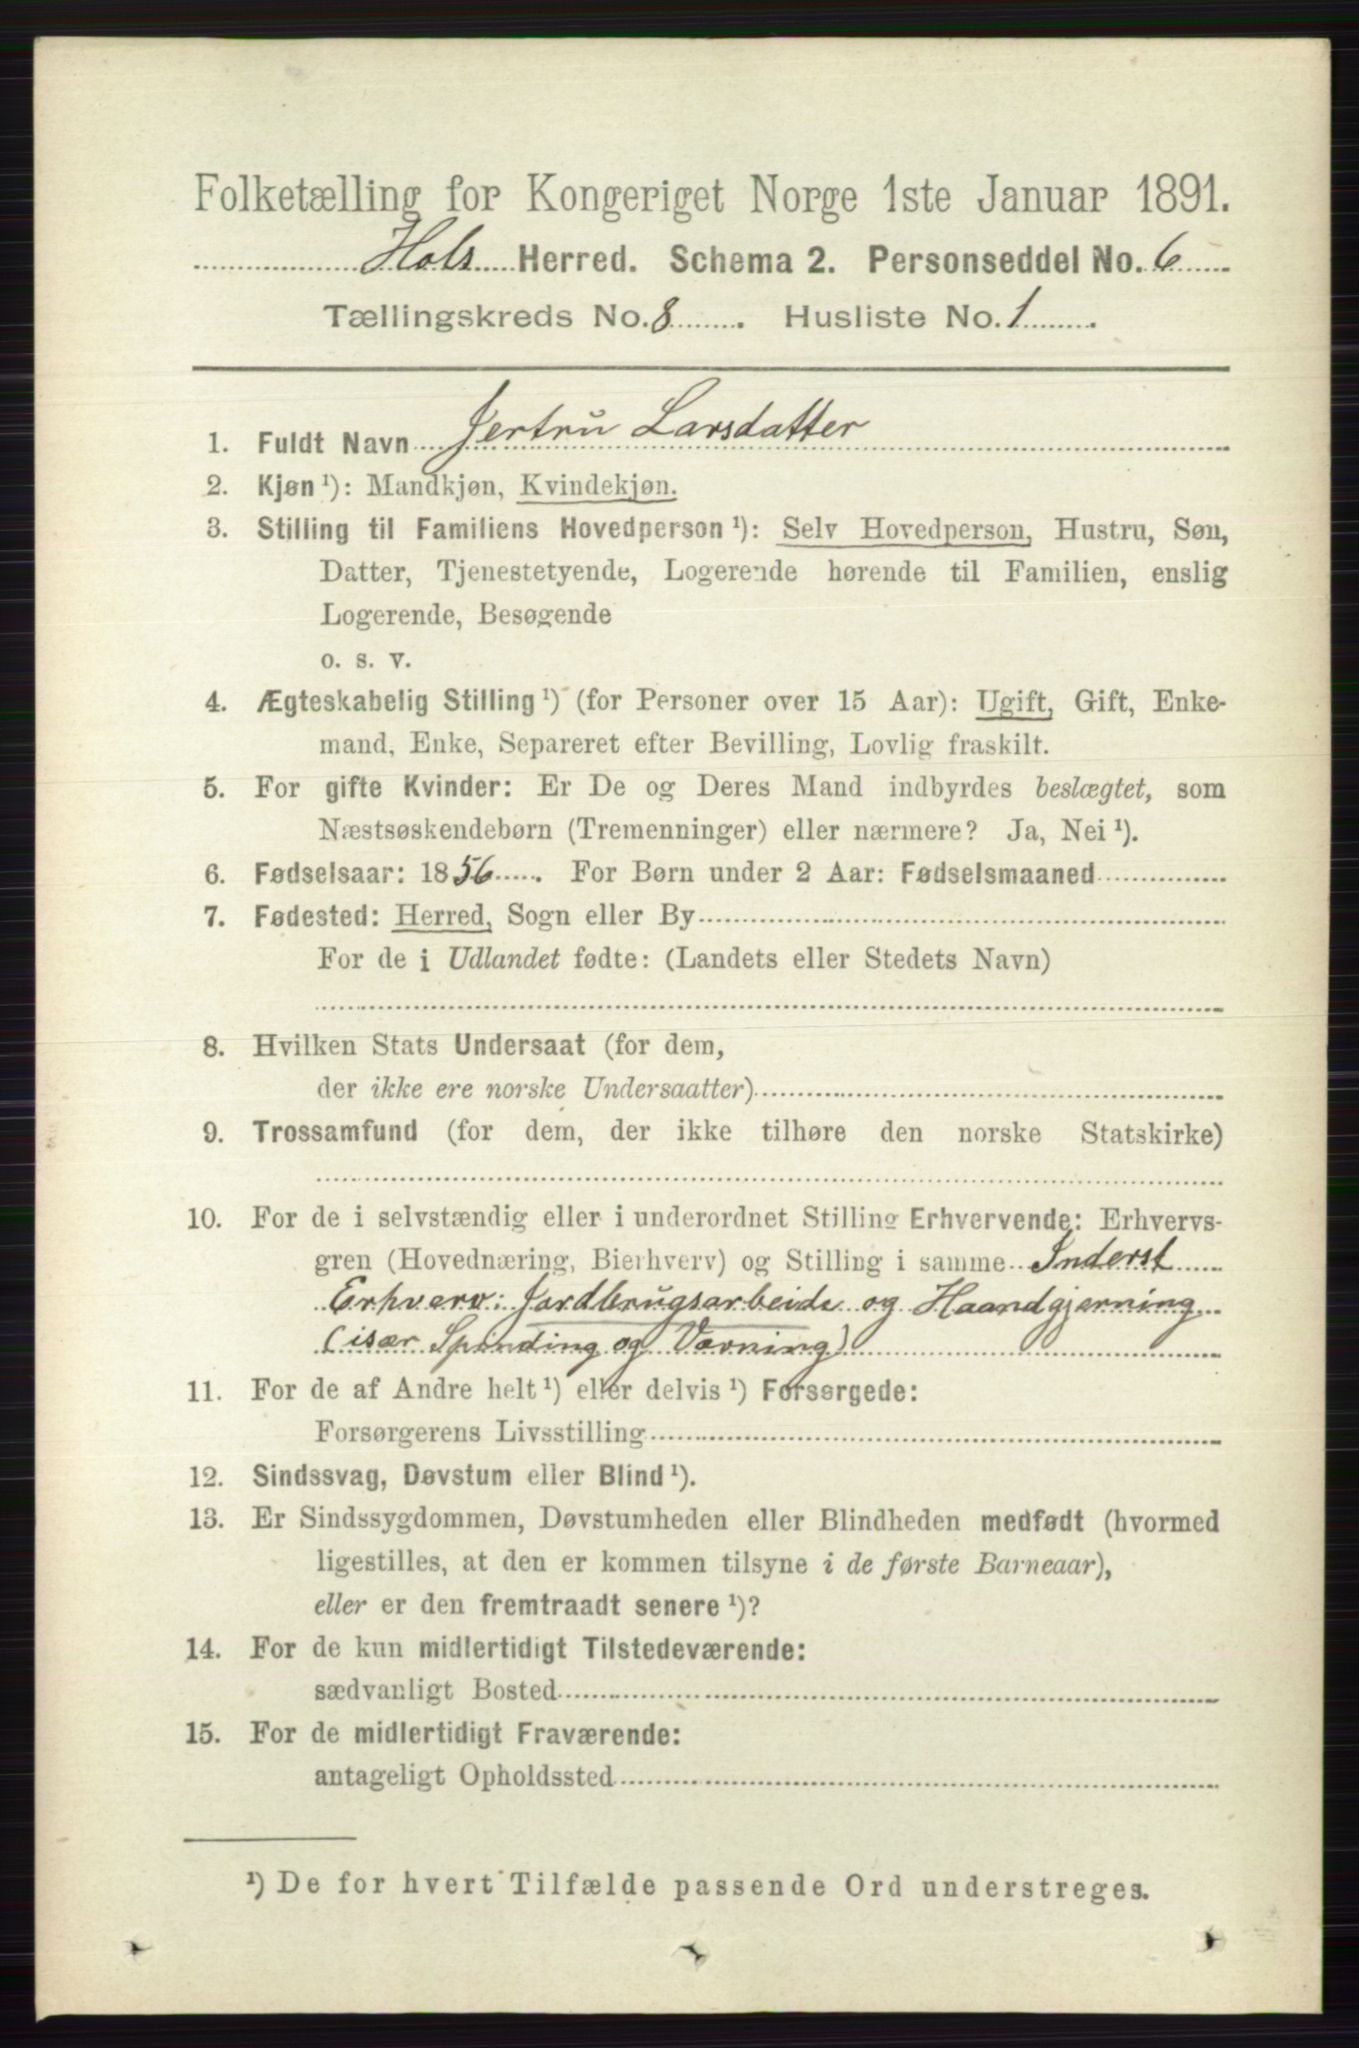 Folketælling for Kongeriget Norge 1ste Januar 1891.
Hols Herred. Schema 2. Personseddel No. 6
Tællingskreds No. 8. Husliste No. 1.
1. Fuldt Navn Jertru Larsdatter
2. Kjøn ¹): Mandkjøn, Kvindekjøn.
3. Stilling til Familiens Hovedperson ¹): Selv Hovedperson, Hustru, Søn,
Datter, Tjenestetyende, Logerende hørende til Familien, enslig
Logerende, Besøgende
o. s. v.
4. Ægteskabelig Stilling ¹) (for Personer over 15 Aar): Ugift, Gift, Enke-
mand, Enke, Separeret efter Bevilling, Lovlig fraskilt.
5. For gifte Kvinder: Er De og Deres Mand indbyrdes beslægtet, som
Næstsøskendebørn (Tremenninger) eller nærmere? Ja, Nei ¹).
6. Fødselsaar: 1856. For Børn under 2 Aar: Fødselsmaaned
7. Fødested: Herred, Sogn eller By
For de i Udlandet fødte: (Landets eller Stedets Navn)
8. Hvilken Stats Undersaat (for dem,
der ikke ere norske Undersaatter)
9. Trossamfund (for dem, der ikke tilhøre den norske Statskirke)
10. For de i selvstændig eller i underordnet Stilling Erhvervende: Erhvervs-
gren (Hovednæring, Bierhverv) og Stilling i samme Inderst
Erhverv: Jordbrugsarbeide og Haandgjerning
(især Spinding og Vævning)
11. For de af Andre helt ¹) eller delvis ¹) Forsørgede:
Forsørgerens Livsstilling
12. Sindssvag, Døvstum eller Blind ¹).
13. Er Sindssygdommen, Døvstumheden eller Blindheden medfødt (hvormed
ligestilles, at den er kommen tilsyne i de første Barneaar),
eller er den fremtraadt senere ¹)?
14. For de kun midlertidigt Tilstedeværende:
sædvanligt Bosted
15. For de midlertidigt Fraværende:
antageligt Opholdssted
¹) De for hvert Tilfælde passende Ord understreges.